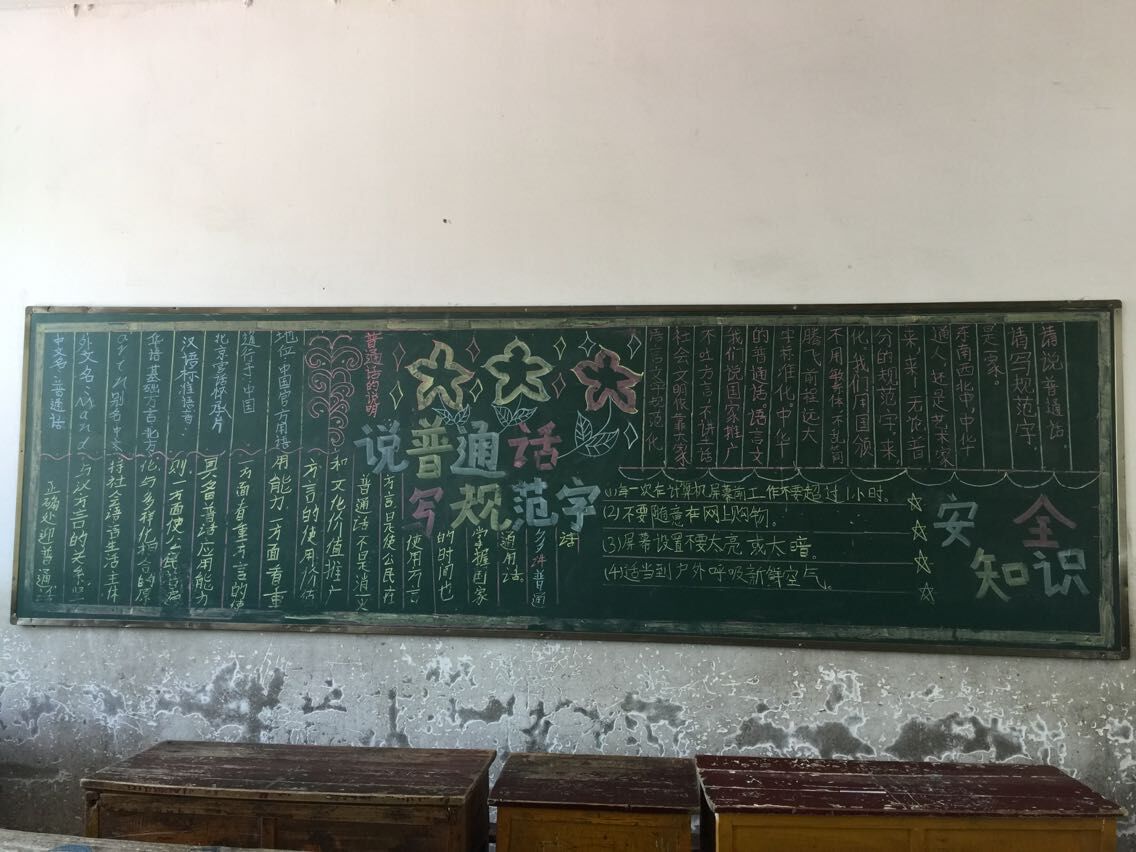 说普通话
写规范字
请说普通话，
请写规范字，
是一家。
东南西北中，中华
通人，还是艺术家
来来，无论普
分的规范字，来
化，我们用国颁
不用繁体，不乱简
腾飞前程远大
字标准化，中华
的普通话语言文
我们说国家推广
不吐方言，不讲土话
社会文明依靠大家
语言文字规范化
安全
知识
(1)每一次在计算机屏幕前工作不要超过1小时。
(2)不要随意在网上购物。
(3)屏幕设置不要太亮或太暗。
(4)适当到户外呼吸新鲜空气。
普通话的说明
中文名：普通话
外文名：Mand
arin别名：中文
华语 基础方言：北方
汉语标准语音：
北京官话怀承片
通行于：中国
地位：中国官方用语
正确处理普通话
与汉方言的关系
持社会语言生活主体
化与多样化相合的原
则，一方面使公民普遍
具备普话应用能力
方面看重方言的使
用能力一方面看重
方言的使用价估
和文化价值推广
普通话不是消灭
方言是使公民在
使用方言
的时间也
掌握国家
通用话。
多讲普通
话